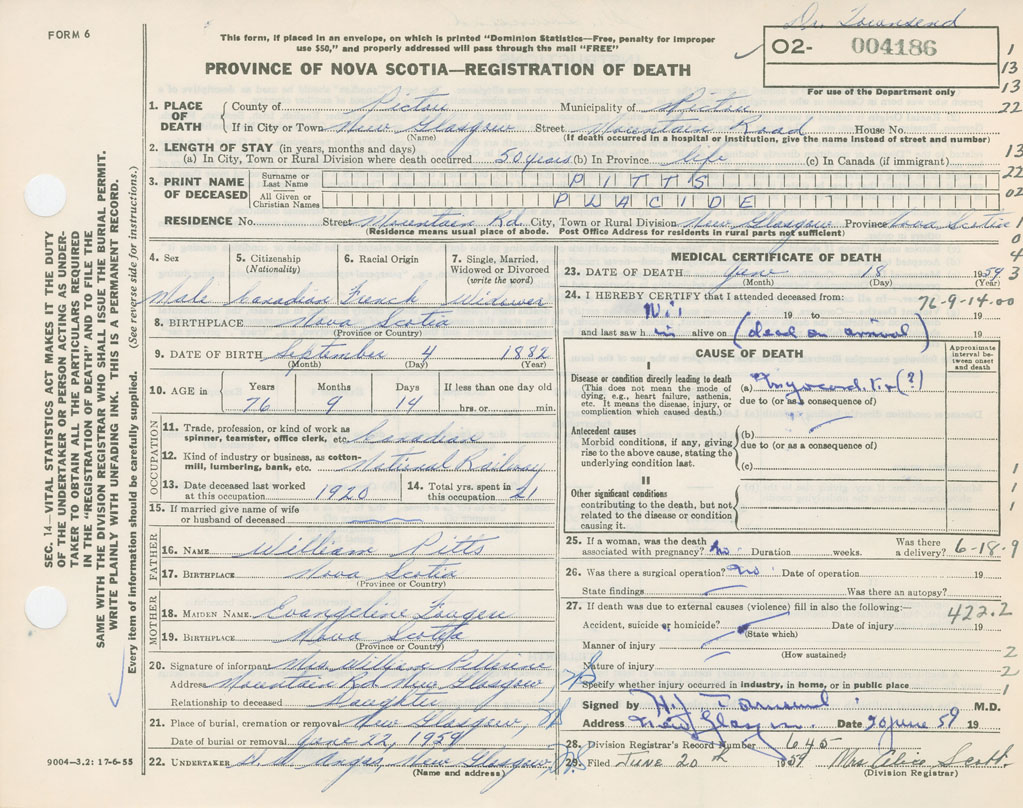 FORM 6
This form, if placed in an envelope, on which is printed "Dominion Statistics—Free, penalty for improper
use $50," and properly addressed will pass through the mail "FREE"
PROVINCE OF NOVA SCOTIA—REGISTRATION OF DEATH
Dr. Townsend
02- 004186
For use of the Department only
1
13
13
22
13
22
02
1
0
4
3
SEC. 14—VITAL STATISTICS ACT MAKES IT THE DUTY
OF THE UNDERTAKER OR PERSON ACTING AS UNDER-
TAKER TO OBTAIN ALL THE PARTICULARS REQUIRED
IN THE "REGISTRATION OF DEATH" AND TO FILE THE
SAME WITH THE DIVISION REGISTRAR WHO SHALL ISSUE THE BURIAL PERMIT.
WRITE PLAINLY WITH UNFADING INK. THIS IS A PERMANENT RECORD.
Every item of information should be carefully supplied. (See reverse side for instructions.)
1. PLACE OF DEATH County of Pictou Municipality of Pictou
If in City or Town New Glasgow Street Mountain Road House No.
(Name) (If death occurred in a hospital or institution, give the name instead of street and number)
2. LENGTH OF STAY (in years, months and days)
(a) In City, Town or Rural Division where death occurred 50 years (b) In Province life (c) In Canada (if immigrant)
3. PRINT NAME OF DECEASED Surname or Last Name PITTS
All Given or Christian Names PLACIDE
RESIDENCE No. Street Mountain Rd. City, Town or Rural Division New Glasgow Province Nova Scotia
(Residence means usual place of abode. Post Office Address for residents in rural parts not sufficient)
4. Sex 5. Citizenship (Nationality) 6. Racial Origin 7. Single, Married, Widowed or Divorced (write the word)
Male Canadian French Widower
8. BIRTHPLACE Nova Scotia
(Province or Country)
9. DATE OF BIRTH September 4 1882
(Month) (Day) (Year)
10. AGE in Years Months Days If less than one day old
76 9 14 hrs. or min.
OCCUPATION
11. Trade, profession, or kind of work as spinner, teamster, office clerk, etc. Canadian
12. Kind of industry or business, as cotton-mill, lumbering, bank, etc. National Railway
13. Date deceased last worked at this occupation 1920 14. Total yrs. spent in this occupation 21
15. If married give name of wife or husband of deceased
FATHER
16. NAME William Pitts
17. BIRTHPLACE Nova Scotia
(Province or Country)
MOTHER
18. MAIDEN NAME Evangeline
19. BIRTHPLACE Nova Scotia
(Province or Country)
20. Signature of informant Mrs. William
Address Mountain Rd. New Glasgow
Relationship to deceased Daughter
21. Place of burial, cremation or removal New Glasgow,
Date of burial or removal June 22, 1959
22. UNDERTAKER Angus, New Glasgow
(Name and address)
9004—3.2: 17-6-55
MEDICAL CERTIFICATE OF DEATH
23. DATE OF DEATH June 18 1959
(Month) (Day) (Year)
24. I HEREBY CERTIFY that I attended deceased from: 76-9-14.00
Nil 19 to 19
and last saw him alive on (dead on arrival) 19
CAUSE OF DEATH
Approximate interval between onset and death
I
Disease or condition directly leading to death (a) Myocarditis (?)
(This does not mean the mode of dying, e.g., heart failure, asthenia, etc. It means the disease, injury, or complication which caused death.) due to (or as a consequence of)
Antecedent causes (b)
Morbid conditions, if any, giving rise to the above cause, stating the underlying condition last. due to (or as a consequence of)
(c)
1
1
II
Other significant conditions
contributing to the death, but not related to the disease or condition causing it.
1
25. If a woman, was the death associated with pregnancy? No Duration weeks. Was there a delivery?
6-18-9
26. Was there a surgical operation? No Date of operation 19
State findings Was there an autopsy?
27. If death was due to external causes (violence) fill in also the following:—
422.2
Accident, suicide or homicide? Date of injury 19
(State which)
Manner of injury 2
(How sustained)
Nature of injury 2
Specify whether injury occurred in industry, in home, or in public place 1
Signed by H. J. Townsend M.D.
Address New Glasgow Date 20 June 59 19
28. Division Registrar's Record Number 645
29. Filed JUNE 20th 1959 Mrs Alice Scott
(Division Registrar)